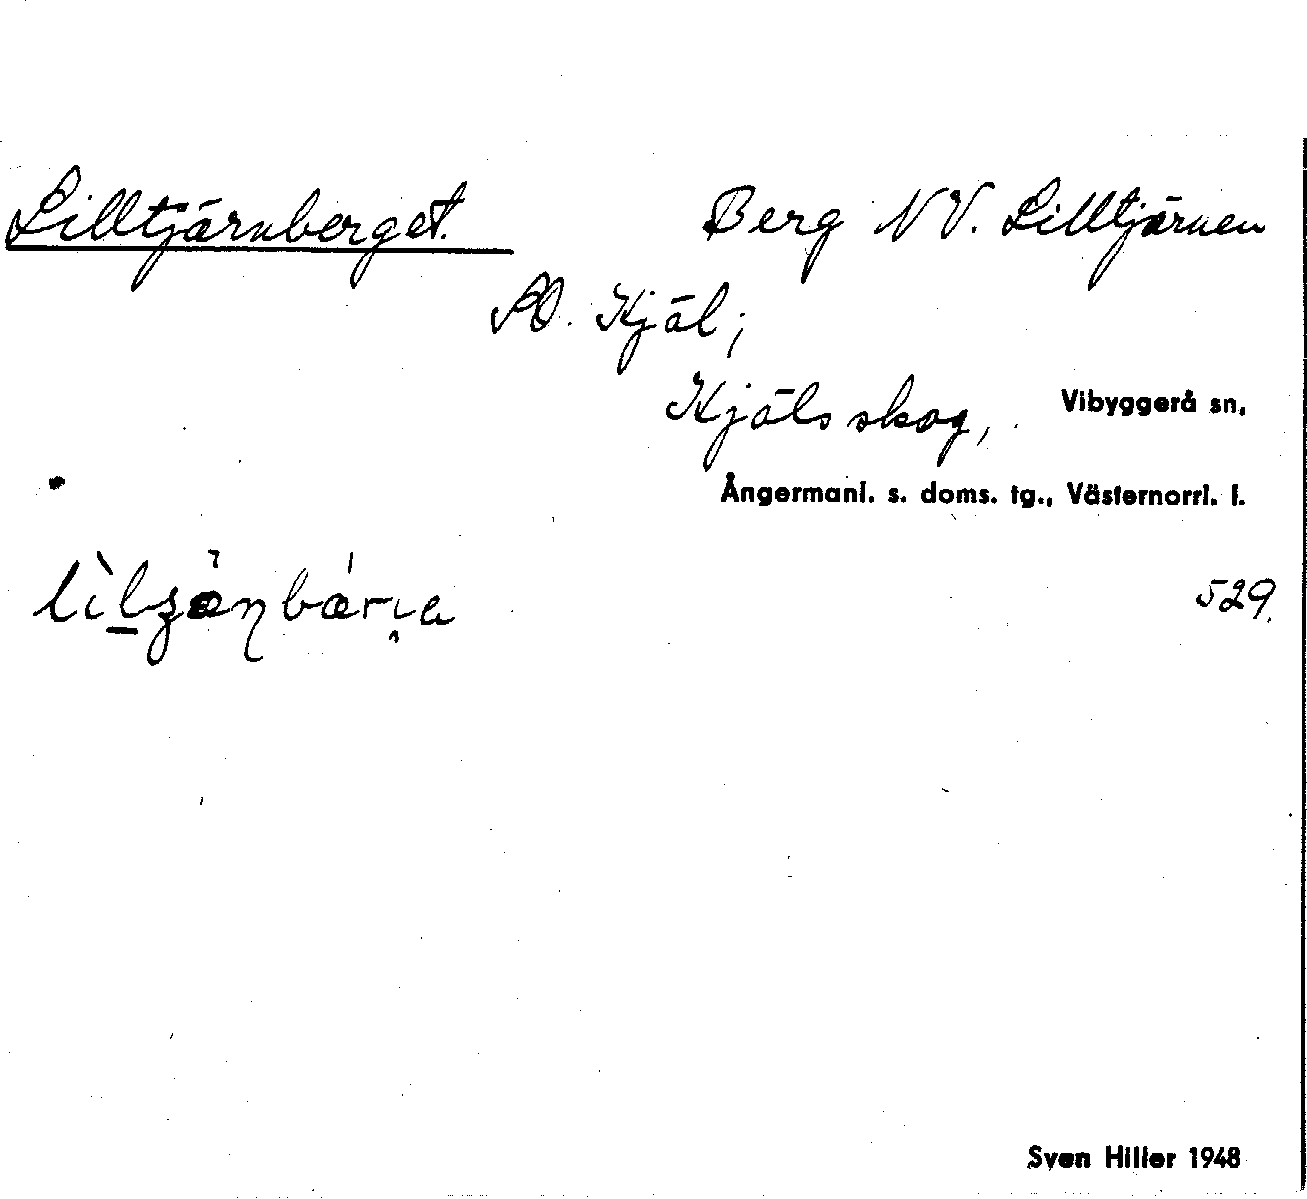 Lilltjärnberget. Berg NV. Lilltjärnen
SO. Kjäl;
Kjälsskog, Vibyggerå sn,
Ångermanl. s. doms. tg., Västernorrl. l.
529.
Sven Hiller 1948